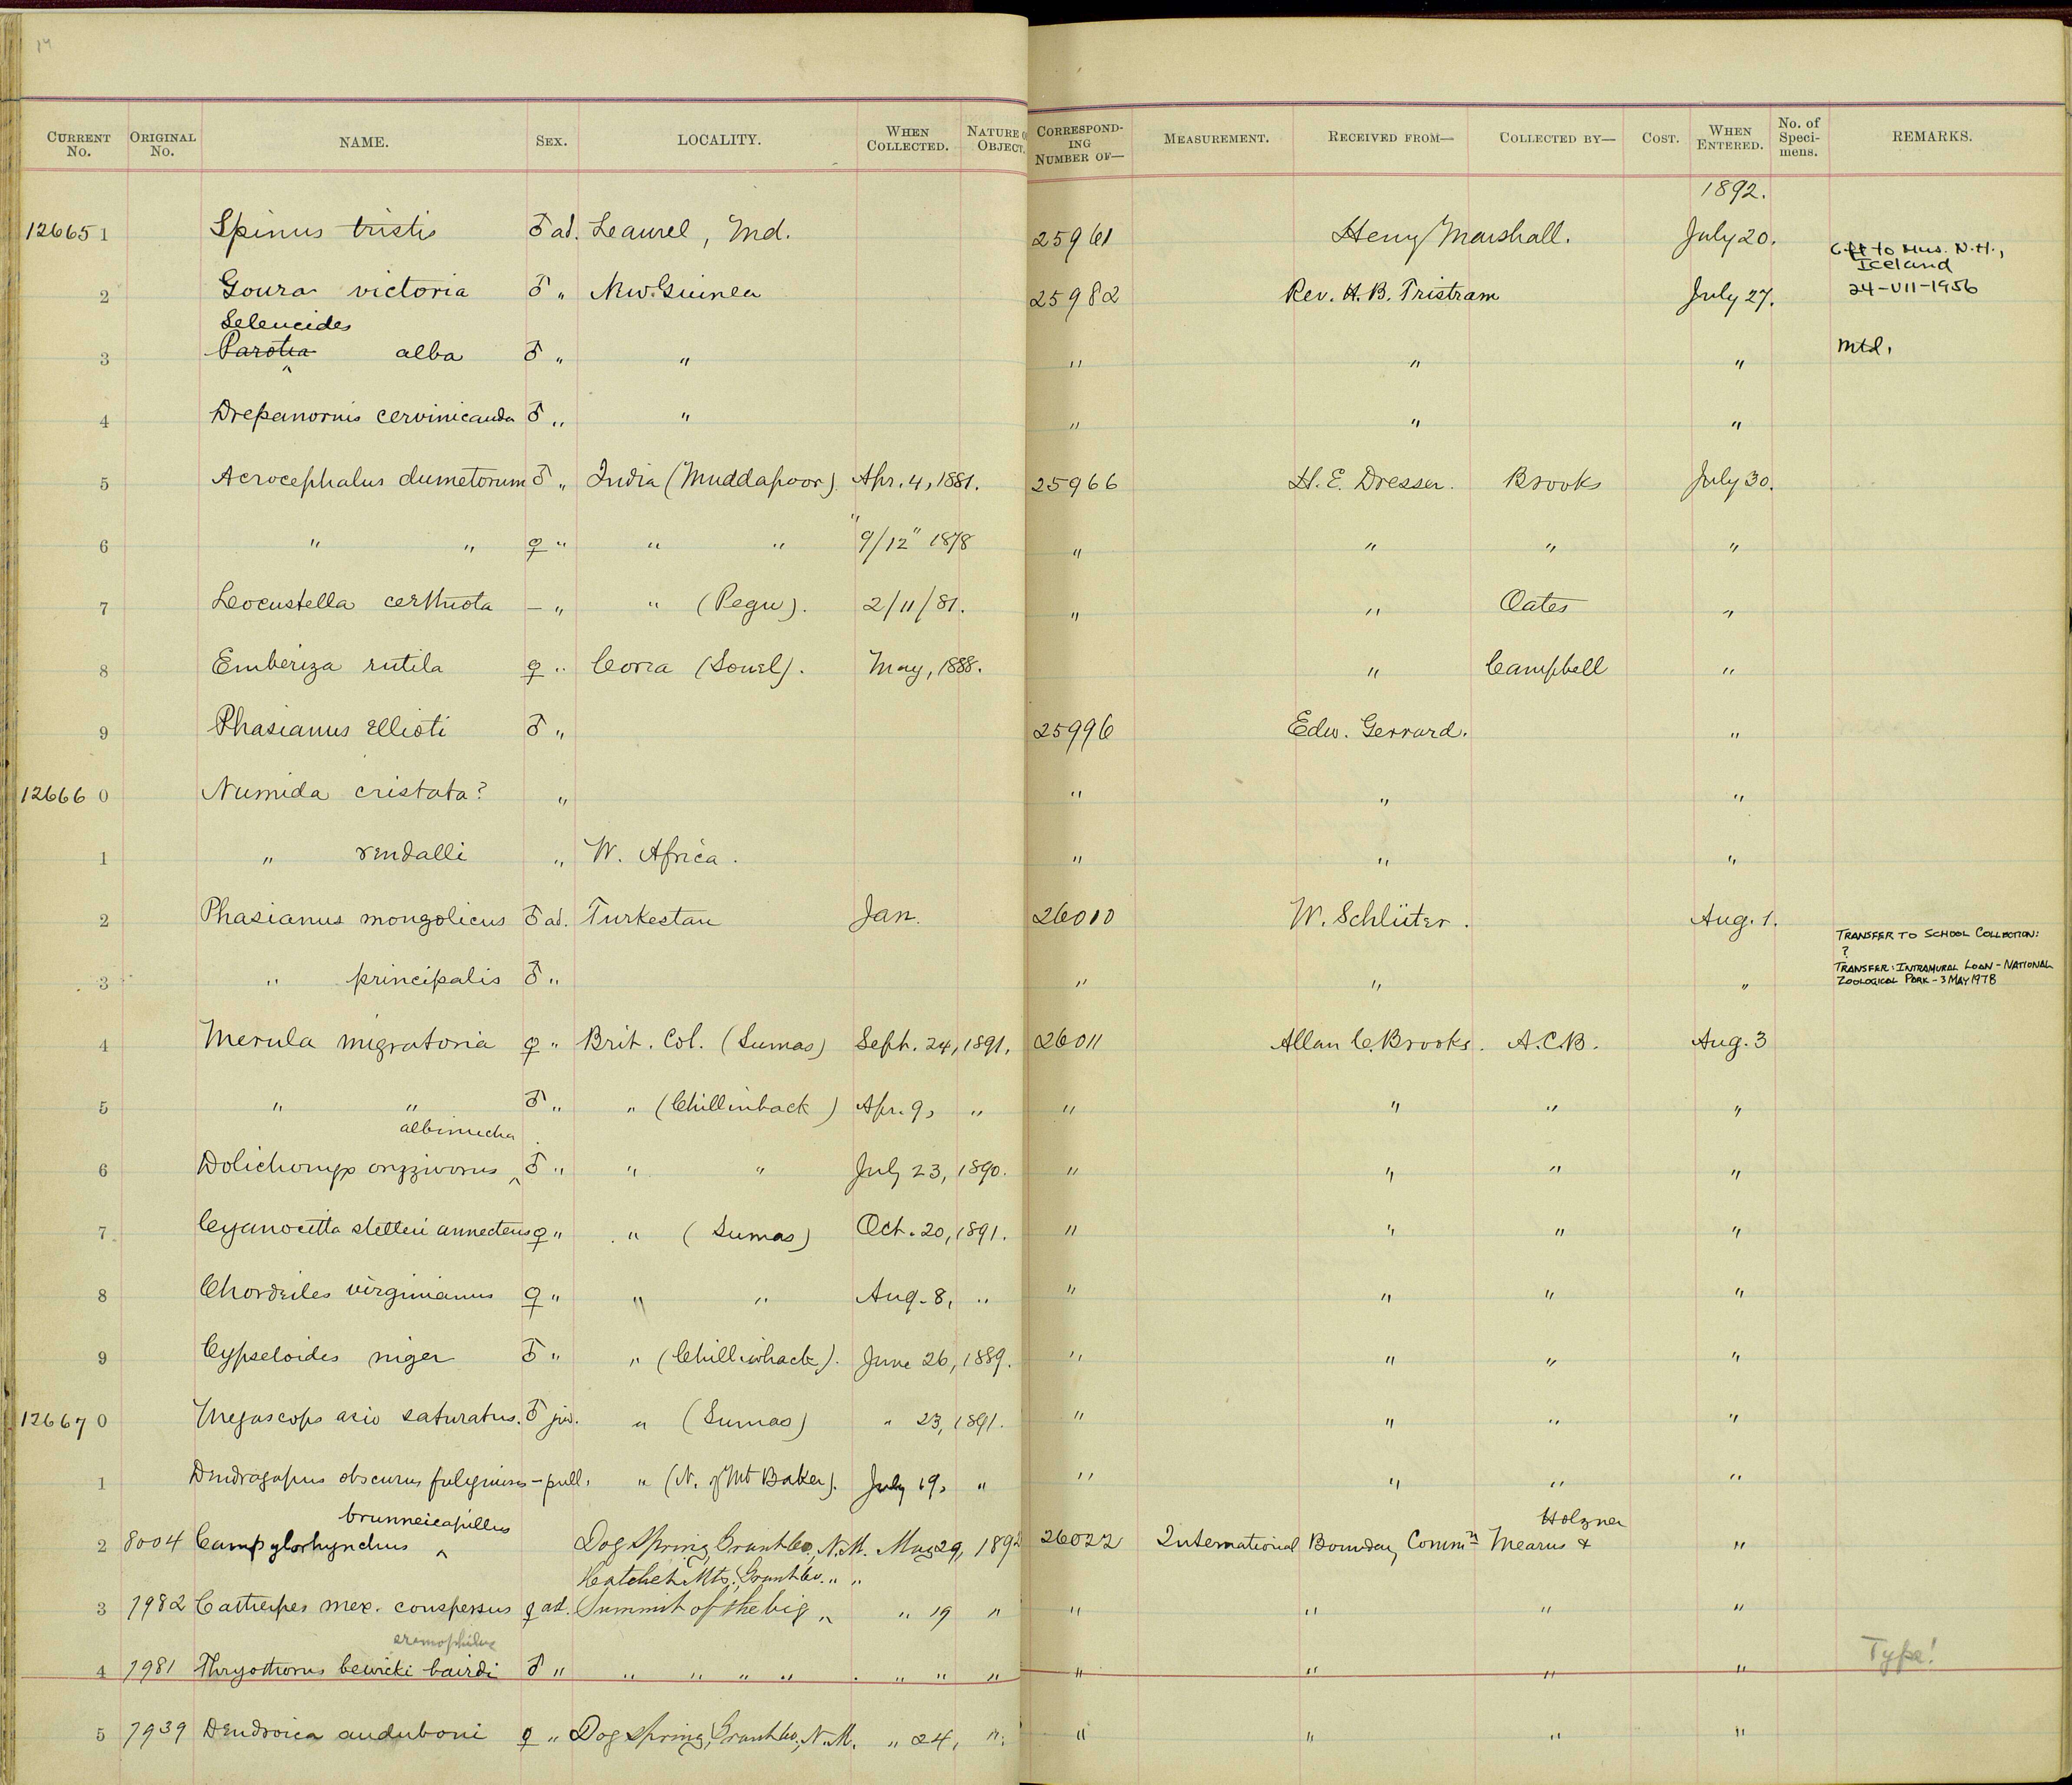 14
CURRENT No. ORIGINAL No. NAME. SEX. LOCALITY. WHEN COLLECTED. NATURE OF OBJECT. CORRESPONDING NUMBER OF— MEASUREMENT. RECEIVED FROM— COLLECTED BY— COST. WHEN ENTERED. No. of Specimens. REMARKS.
1892.
126651 Spinus tristis ♂ ad. Leaurel, Md. 25961 Henry Marshall. July 20.
Gift to Mus. N.H., Iceland 24-VII-1956
2 Goura victoria ♂ " New Guinea 25982 Rev. H. B. Tristram July 27.
Seleucides
3 Parotia ^ alba ♂ " " " " " Mtd.
4 Drepanornis cervinicauda ♂ " " " " "
5 Acrocephalus dumetorum ♂ " India (Muddapoor). Apr. 4, 1881. 25966 H. E. Dresser. Brooks July 30.
6 " " ♀ " " " " 9/12" 1878 " " " "
7 Locustella certhiola – " " (Pegu). 2/11/81. " " Oates "
8 Emberiza rutila ♀ " Corea (Souel). May, 1888. " Campbell "
9 Phasianus ellioti ♂ " 25996 Edw. Gerrard. "
126660 Numida cristata? " " " "
1 " rendalli " W. Africa. " " "
2 Phasianus mongolicus ♂ ad. Turkestan Jan. 26010 W. Schlüter. Aug. 1.
TRANSFER TO SCHOOL COLLECTION:
?
3 " principalis ♂ " " " "
TRANSFER: INTRAMURAL LOAN - NATIONAL
ZOOLOGICAL PARK - 3 MAY 1978
4 Merula migratoria ♀ " Brit. Col. (Sumas) Sept. 24, 1891. 26011 Allan C. Brooks. A.C.B. Aug. 3
5 " " ♂ " " (Chilliwhack) Apr. 9, " " " " "
albinucha
6 Dolichonyx oryzivorus ^ ♂ " " " July 23, 1890. " " " "
7 Cyanocitta stelleri annectens ♀ " " (Sumas) Oct. 20, 1891. " " " "
8 Chordeiles virginianus ♀ " " " Aug. 8, " " " " "
9 Cypseloides niger ♂ " " (Chilliwhack). June 26, 1889. " " " "
126670 Megascops asio saturatus. ♂ juv. " (Sumas) " 23, 1891. " " " "
1 Dendragapus obscurus fuliginosus – pull. " (N. of Mt Baker). July 19, " " " " "
brunneicapillus Holzner
2 8004 Campylorhynchus ^ Dog Spring, Grant Co., N.M. May 29, 1892 26022 International Boundary Commn Mearns & "
Hatchet Mts., Grant Co. " "
3 7982 Catherpes mex. conspersus ♀ ad. Summit of the big " " 19 " " " " "
eremophilus
4 7981 Thryothorus bewicki bairdi ♂ " " " " " " " " " " " " Type!
5 7939 Dendroica auduboni ♀ " Dog Spring, Grant Co., N.M. " 24, " " " " "